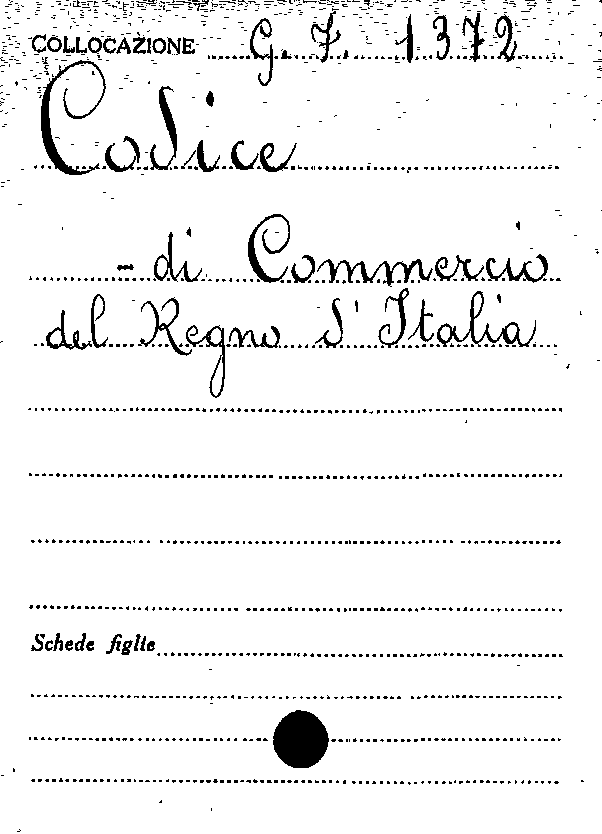 COLLOCAZIONE G. 7. 1372
Codice
- di Commercio
del Regno d'Italia
Schede figlie